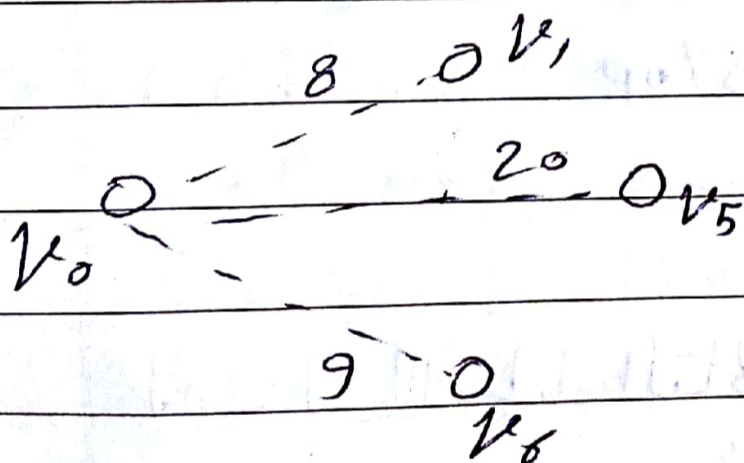 8 V₁
20 V₅
V₀
9
V₆